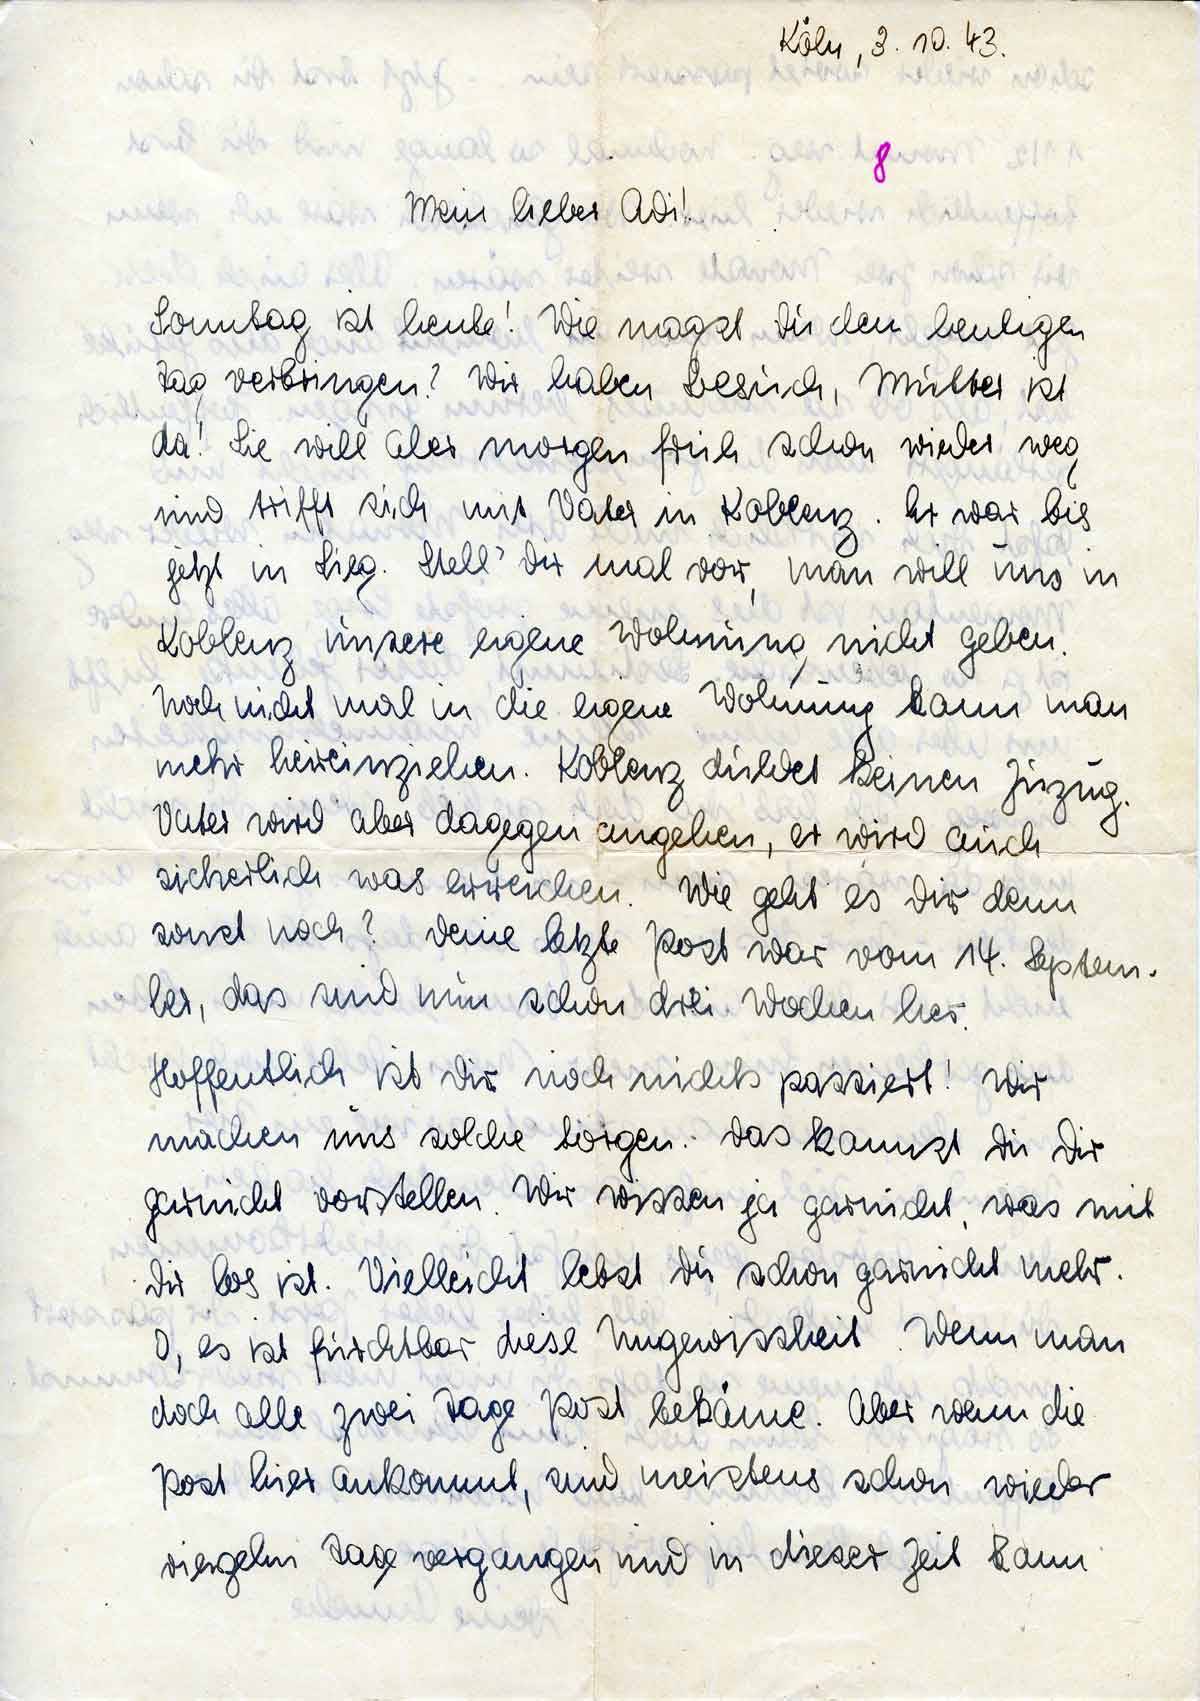 Köln, 3. 10. 43.
8
Mein lieber Adi!
Sonntag ist heute! Wie magst Du den heutigen
Tag verbringen? Wir haben Besuch, Mutter ist
da! Sie will aber morgen früh schon wieder weg
und trifft sich mit Vater in Koblenz. Er war bis
jetzt in Sieg. Stell' Dir mal vor, man will uns in
Koblenz unsere eigene Wohnung nicht geben.
Noch nicht mal in die eigene Wohnung kann man
mehr hereinziehen. Koblenz duldet keinen Zuzug.
Vater wird aber dagegen angehen, er wird auch
sicherlich was erreichen. Wie geht es Dir denn
sonst noch? Deine letzte Post war vom 14. Septem-
ber, das sind nun schon drei Wochen her.
Hoffentlich ist Dir noch nichts passiert! Wir
machen uns solche Sorgen. Das kannst Du Dir
garnicht vorstellen. Wir wissen ja garnicht, was mit
Dir los ist. Vielleicht lebst Du schon garnicht mehr.
O, es ist furchtbar diese Ungewissheit. Wenn man
doch alle zwei Tage Post bekäme. Aber wenn die
Post hier ankommt, sind meistens schon wieder
vierzehn Tage vergangen und in dieser Zeit kann